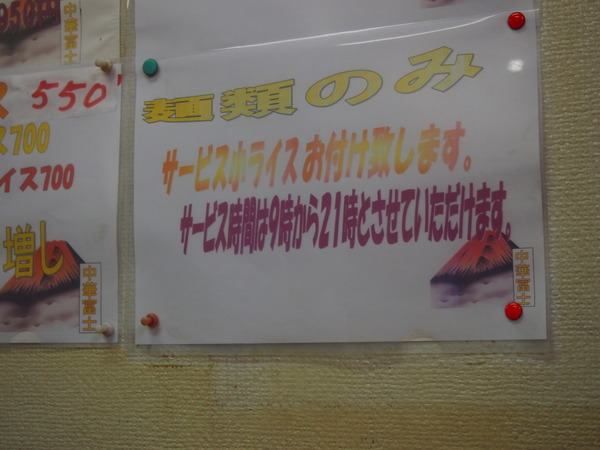 950円
中華富士
ス 550
ス700
イス700
増し
中華富士
麺類のみ
サービス小ライスお付け致します。
サービス時間は9時から21時とさせていただけます。
中華富士